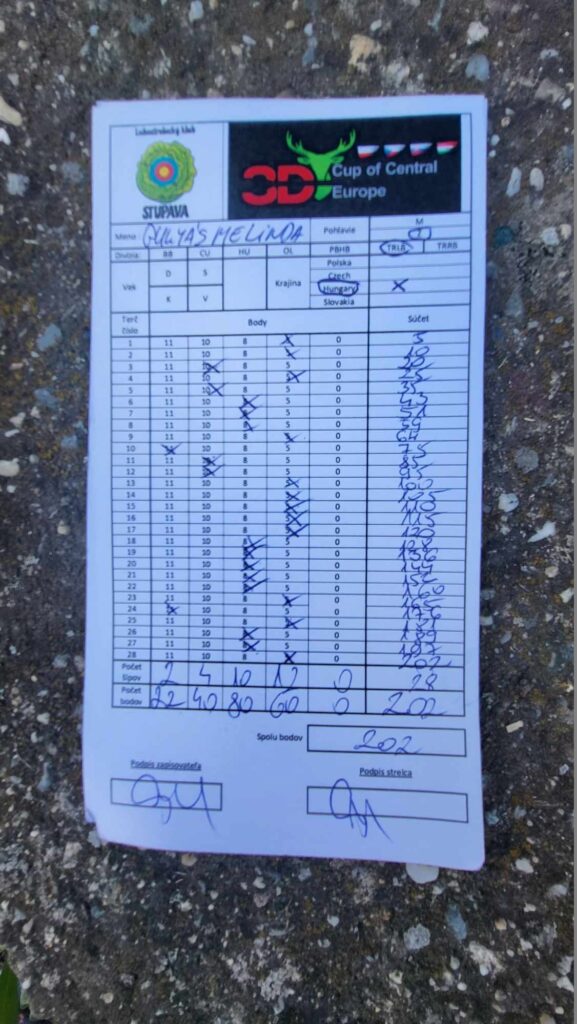 Lukostrelecký klub
STUPAVA
3D Cup of Central
Europe
Meno GULYÁS MELINDA Pohlavie M
Divízia BB CU HU OL PBHB TRLB TRRB
Vek D S Krajina Polska
Czech
K V Hungary X
Slovakia
Terč číslo Body Súčet
1 11 10 8 X 0 5
2 11 10 8 X 0 10
3 11 10 8 5 0 20
4 11 10 8 5 0 25
5 11 10 8 5 0 35
6 11 10 8 5 0 43
7 11 10 8 5 0 51
8 11 10 8 5 0 59
9 11 10 8 5 0 64
10 11 10 8 5 0 75
11 11 10 8 5 0 85
12 11 10 8 5 0 95
13 11 10 8 5 0 100
14 11 10 8 5 0 105
15 11 10 8 5 0 110
16 11 10 8 5 0 115
17 11 10 8 5 0 120
18 11 10 8 5 0 128
19 11 10 8 5 0 136
20 11 10 8 5 0 144
21 11 10 8 5 0 152
22 11 10 8 5 0 160
23 11 10 8 5 0 165
24 11 10 8 5 0 176
25 11 10 8 5 0 181
26 11 10 8 5 0 189
27 11 10 8 5 0 197
28 11 10 8 X 0 202
Počet šípov 2 4 10 12 0 28
Počet bodov 22 40 80 60 0 202
Spolu bodov 202
Podpis zapisovateľa Podpis strelca